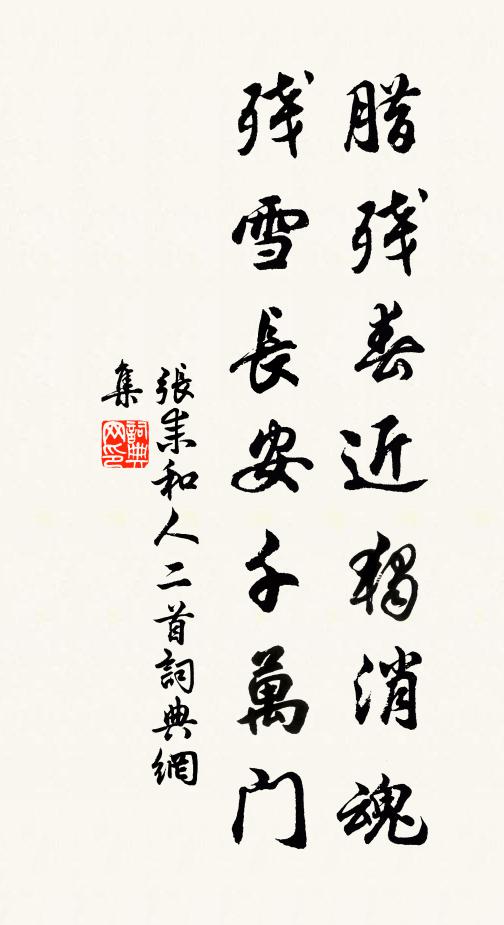 腊残春近独消魂
残雪長安千萬门
張耒和人二首詞典網
集
詞典网印